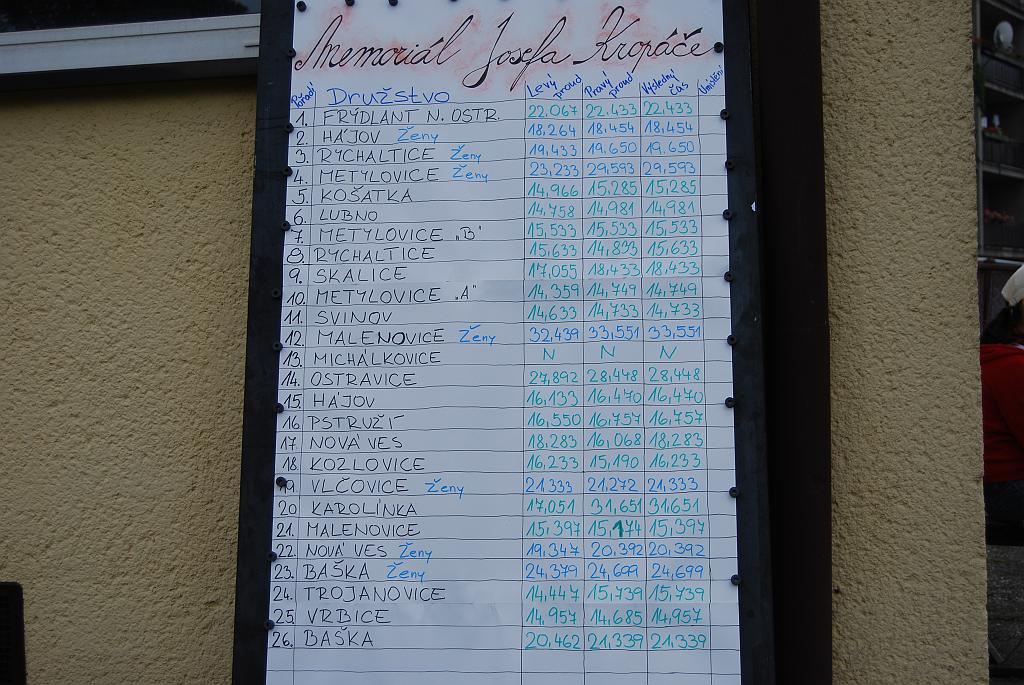 Memoriál Josefa Kropáče
Pořadí Družstvo Levý proud Pravý proud Výsledný čas Umístění
1. FRÝDLANT N. OSTR. 22.067 22.433 22.433
2. HÁJOV Ženy 18,264 18,454 18,454
3. RYCHALTICE Ženy 19,433 19.650 19.650
4. METYLOVICE Ženy 23,233 29,593 29,593
5. KOŠATKA 14,966 15,285 15,285
6. LUBNO 14,758 14,981 14,981
7. METYLOVICE „B" 15,533 15,533 15,533
8. RYCHALTICE 15,633 14,833 15,633
9. SKALICE 17,055 18,433 18,433
10. METYLOVICE „A" 14,359 14,749 14,749
11. SVINOV 14,633 14,733 14,733
12. MALENOVICE Ženy 32,439 33,551 33,551
13. MICHÁLKOVICE N N N
14. OSTRAVICE 27,892 28,448 28,448
15. HÁJOV 16,133 16,470 16,470
16 PSTRUŽÍ 16,550 16,757 16,757
17. NOVÁ VES 18,283 16,068 18,283
18. KOZLOVICE 16,233 15,190 16,233
19. VLČOVICE Ženy 21,333 21,272 21,333
20 KAROLÍNKA 17,051 31,651 31,651
21. MALENOVICE 15,397 15,174 15,397
22. NOVÁ VES Ženy 19,347 20,392 20,392
23. BAŠKA Ženy 24,379 24,699 24,699
24. TROJANOVICE 14,447 15,739 15,739
25. VRBICE 14,957 14,685 14,957
26. BAŠKA 20,462 21,339 21,339